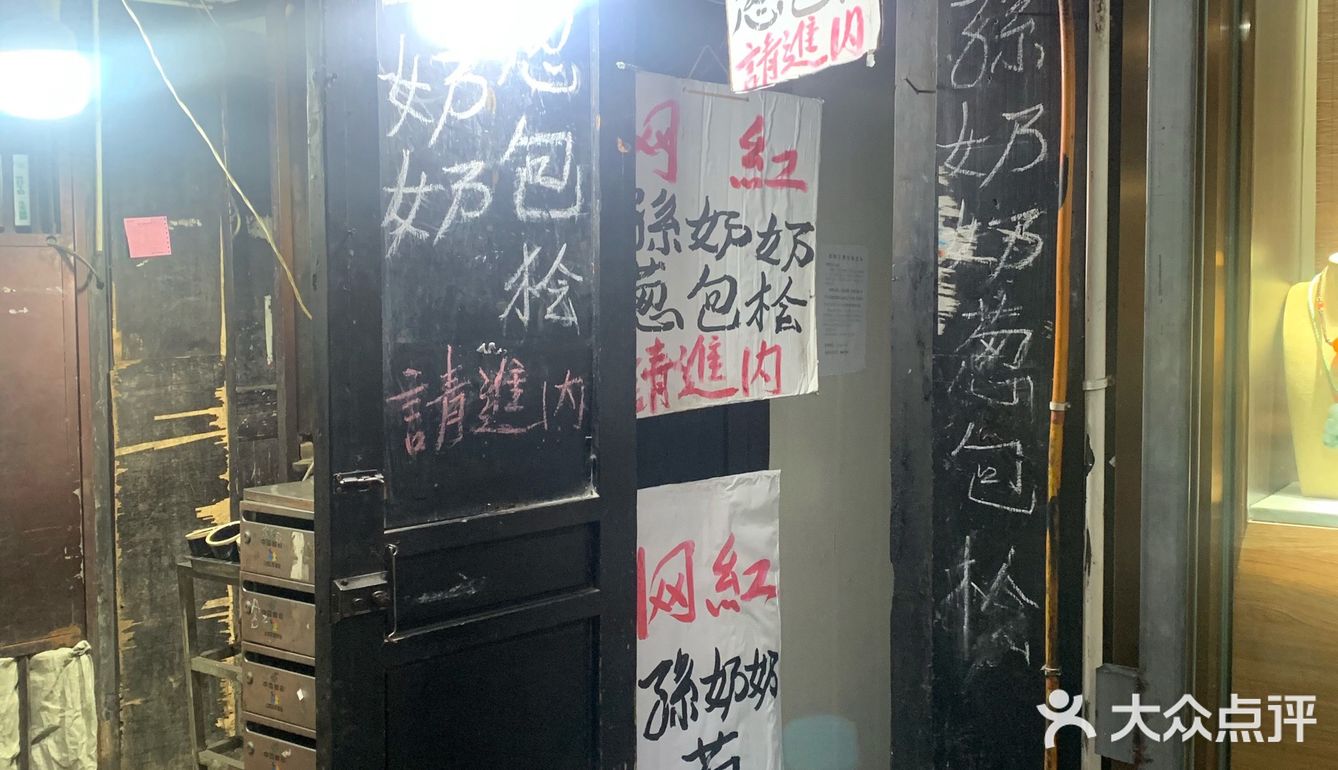 奶奶
葱包桧
請進内
葱包
請進内
网紅
孫奶奶
葱包桧
請進内
网紅
孫奶奶
孫奶奶葱包桧
大众点评